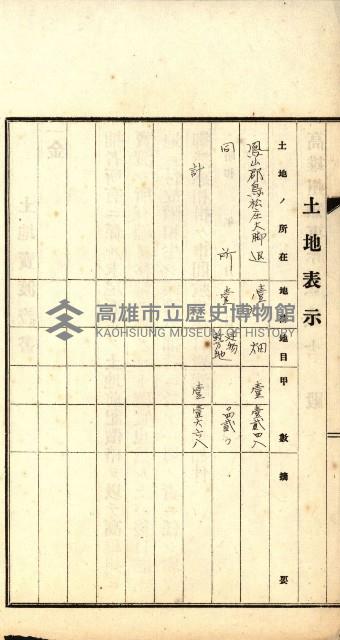 土地表示
土地ノ所在 地番 地目 甲數 摘要
鳳山郡鳥松庄大脚腿 壹 畑 壹 壹貳四八
同所 壹 建物敷地
計 壹 壹六六八
高雄市立歷史博物館
KAOHSIUNG MUSEUM OF HISTORY